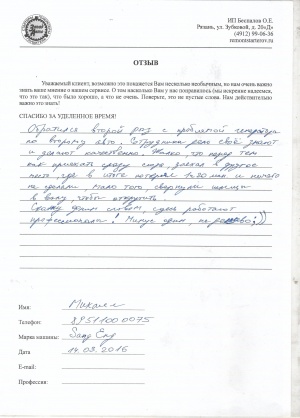 ИП Беспалов О.Е.
Рязань, ул. Зубковой, д. 29«Д»
(4912) 99-06-36
remontstartorov.ru
ОТЗЫВ
Уважаемый клиент, возможно это покажется Вам несколько необычным, но нам очень важно
знать ваше мнение о нашем сервисе. О том насколько Вам у нас понравилось (мы искренне надеемся,
что это так), что было хорошо, а что не очень. Поверьте, это не пустые слова. Нам действительно
важно это знать!
СПАСИБО ЗА УДЕЛЕННОЕ ВРЕМЯ!
Обратился второй раз с проблемой генератора
по второму авто. Сотрудники дело своё знают
и делают качественно. Жалко, что перед тем
как приехать сразу сюда, заехал в другое
место, где в итоге потерял 1ч 20 мин и ничего
не сделали. Мало того, свернули
болт, чтобы открутить.
Скажу одним словом, здесь работают
профессионалы! Минус один, не дёшево :))
Имя: Михаил
Телефон: 89511000075
Марка машины: Sang Eng
Дата 14.09.2016
E-mail:
Профессия: